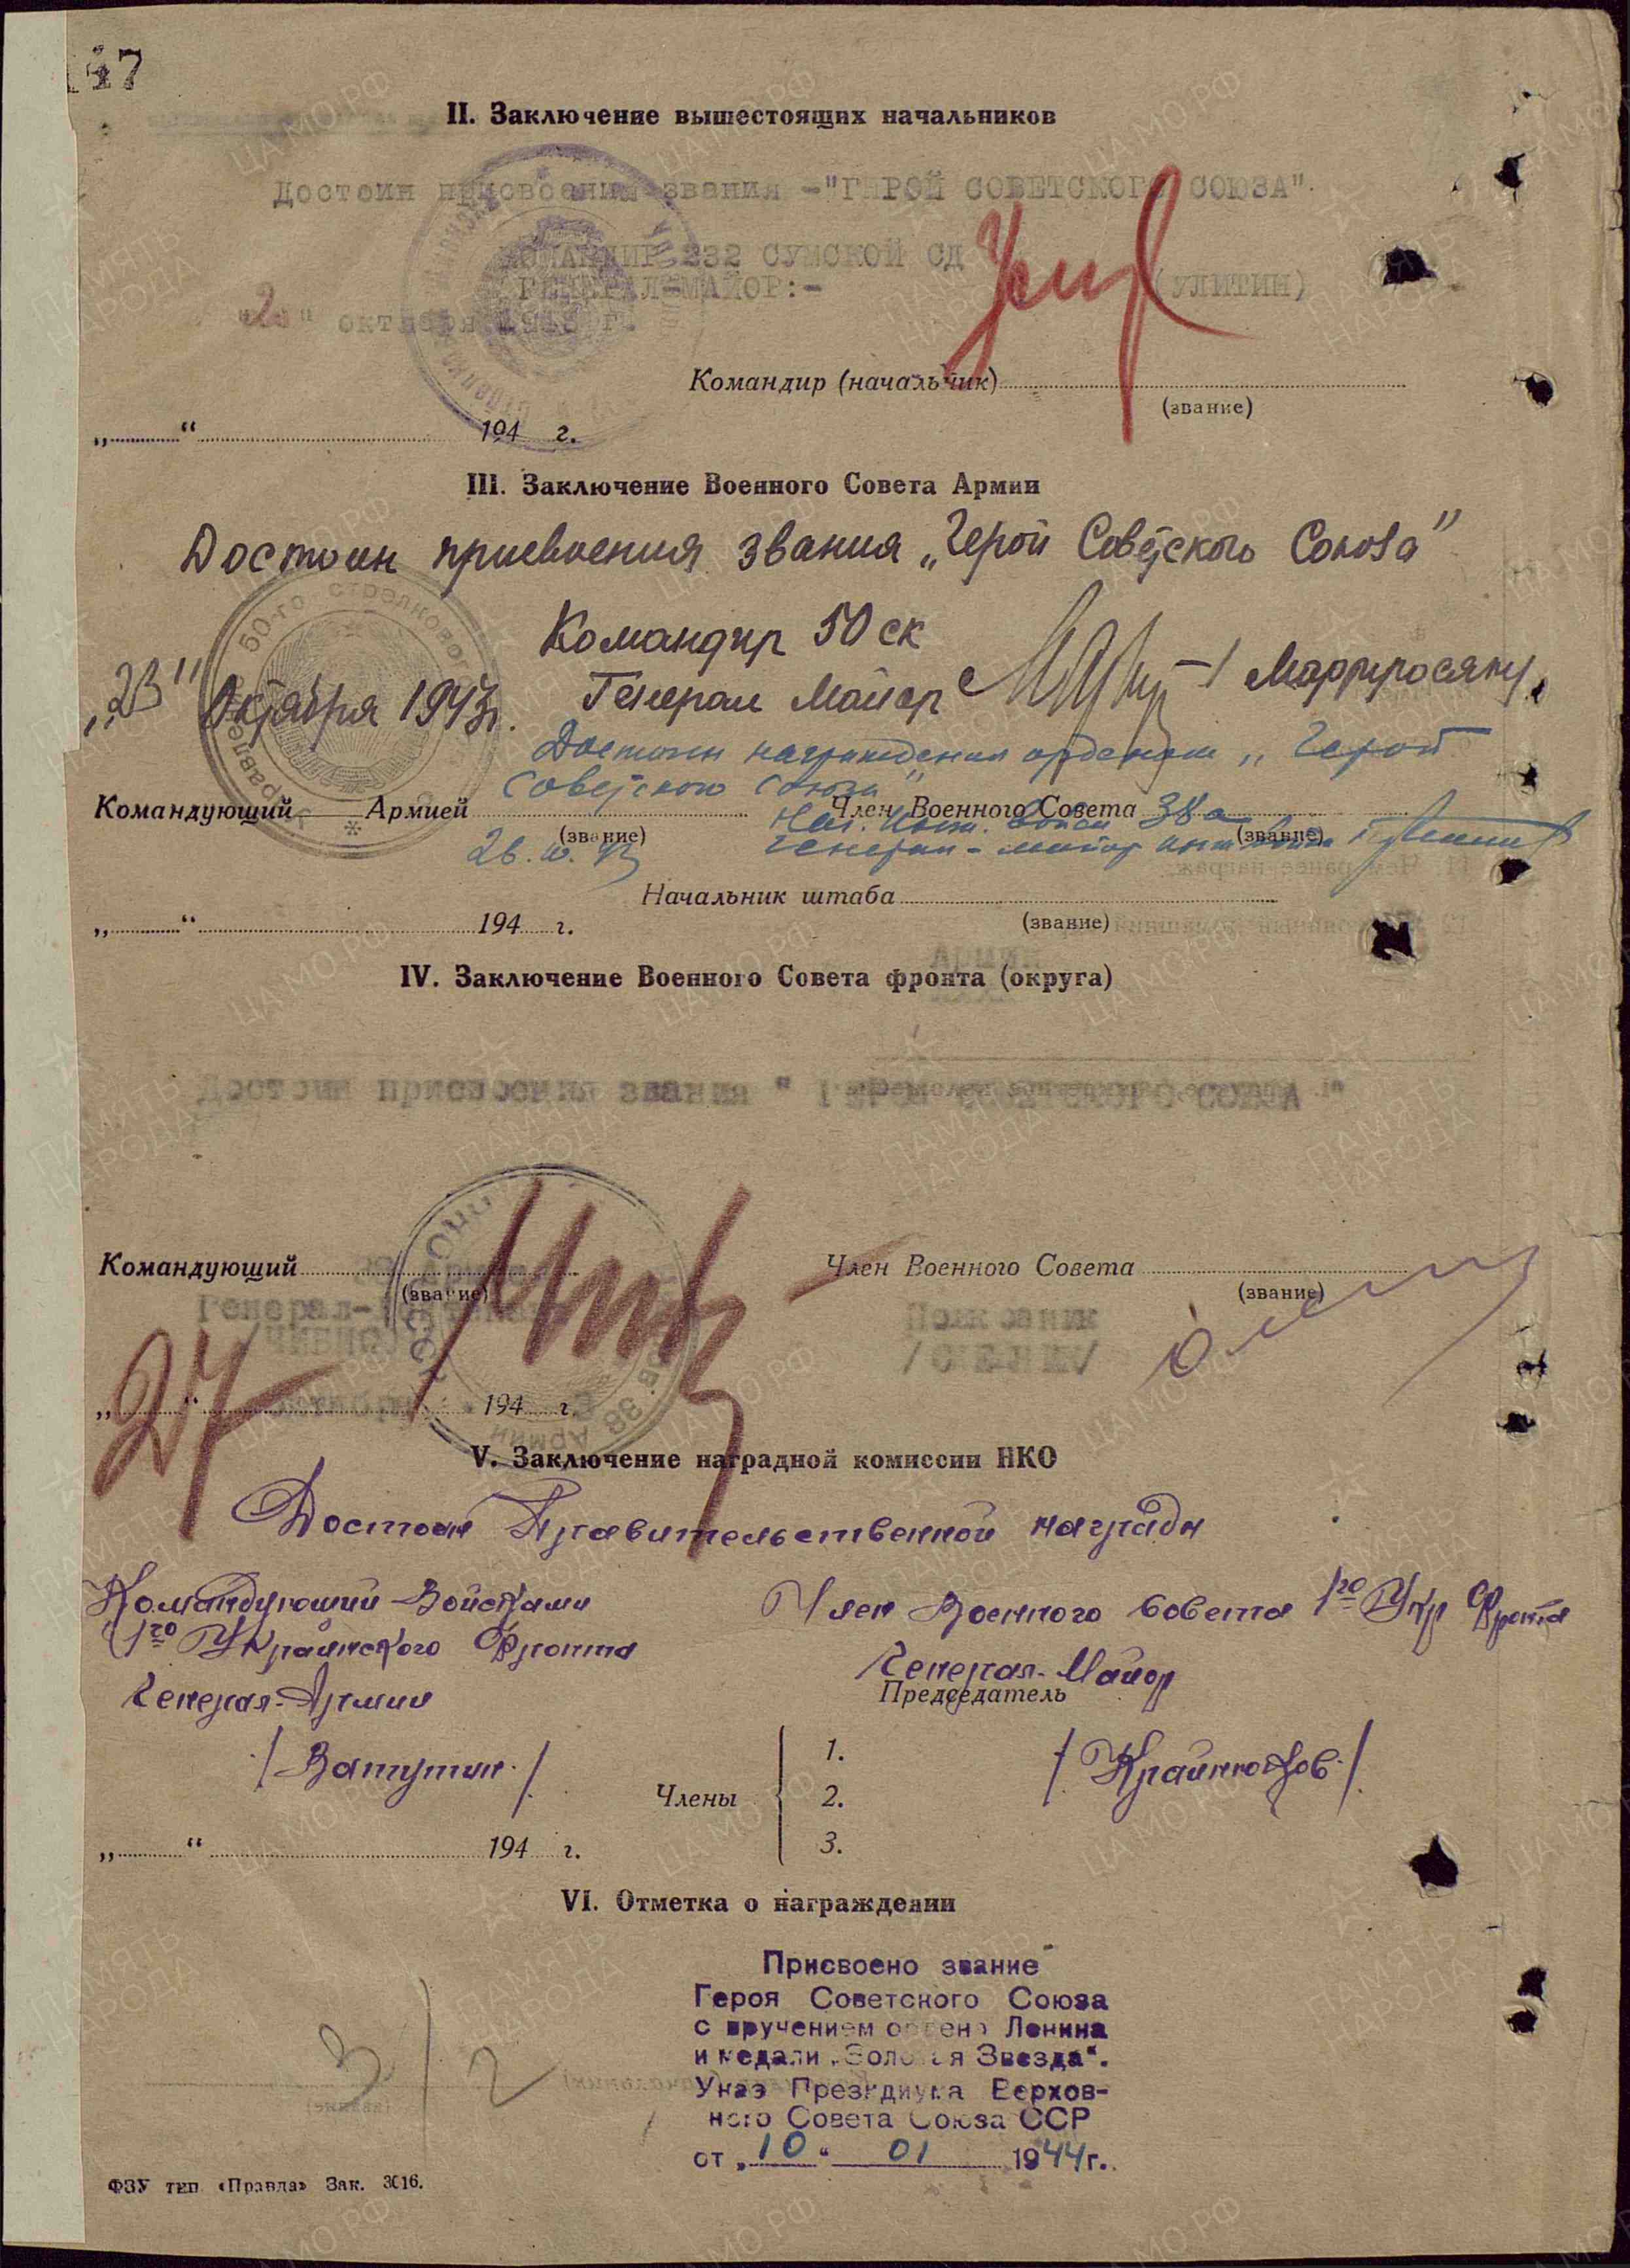 147
II. Заключение вышестоящих начальников
Достоин присвоения звания -"ГЕРОЙ СОВЕТСКОГО СОЮЗА".
КОМАНДИР 232 СУМСКОЙ СД
ГЕНЕРАЛ-МАЙОР:- (УЛИТИН)
октября 1943 г.
Командир (начальчик)
(звание)
„ “ 194 г.
III. Заключение Военного Совета Армии
Достоин присвоения звания „Герой Советского Союза"
Командир 50 ск
Генерал Майор Мартиросян
„23" Октября 1943 г.
Достоин награждения орденом „Герой
Советского Союза"
Командующий Армией Член Военного Совета
(звание) (звание)
Нач. Инж. Войск 38 а
26.10.43 Генерал-майор инж. войск
Начальник штаба
„ “ 194 г. (звание)
IV. Заключение Военного Совета фронта (округа)
Достоин присвоения звания " Герой СОВЕТСКОГО СОЮЗА "
Командующий Член Военного Совета
(звание) (звание)
Генерал- Полковник
27
„ “ 194 г.
V. Заключение наградной комиссии НКО
Достоин Правительственной награды
Командующий Войсками Член Военного Совета 1го Укр Фронта
1го Украинского Фронта
Генерал-Майор
Генерал-Армии Председатель
/Ватутин/ /Крайнюков/
Члены
1.
2.
3.
„ “ 194 г.
VI. Отметка о награждении
Присвоено звание
Героя Советского Союза
с вручением ордена Ленина
и медали „Золотая Звезда“.
Указ Президиума Верхов-
ного Совета Союза ССР
от „10“ 01 1944 г.
3/2
ФЗУ тип «Правда» Зак. 3016.